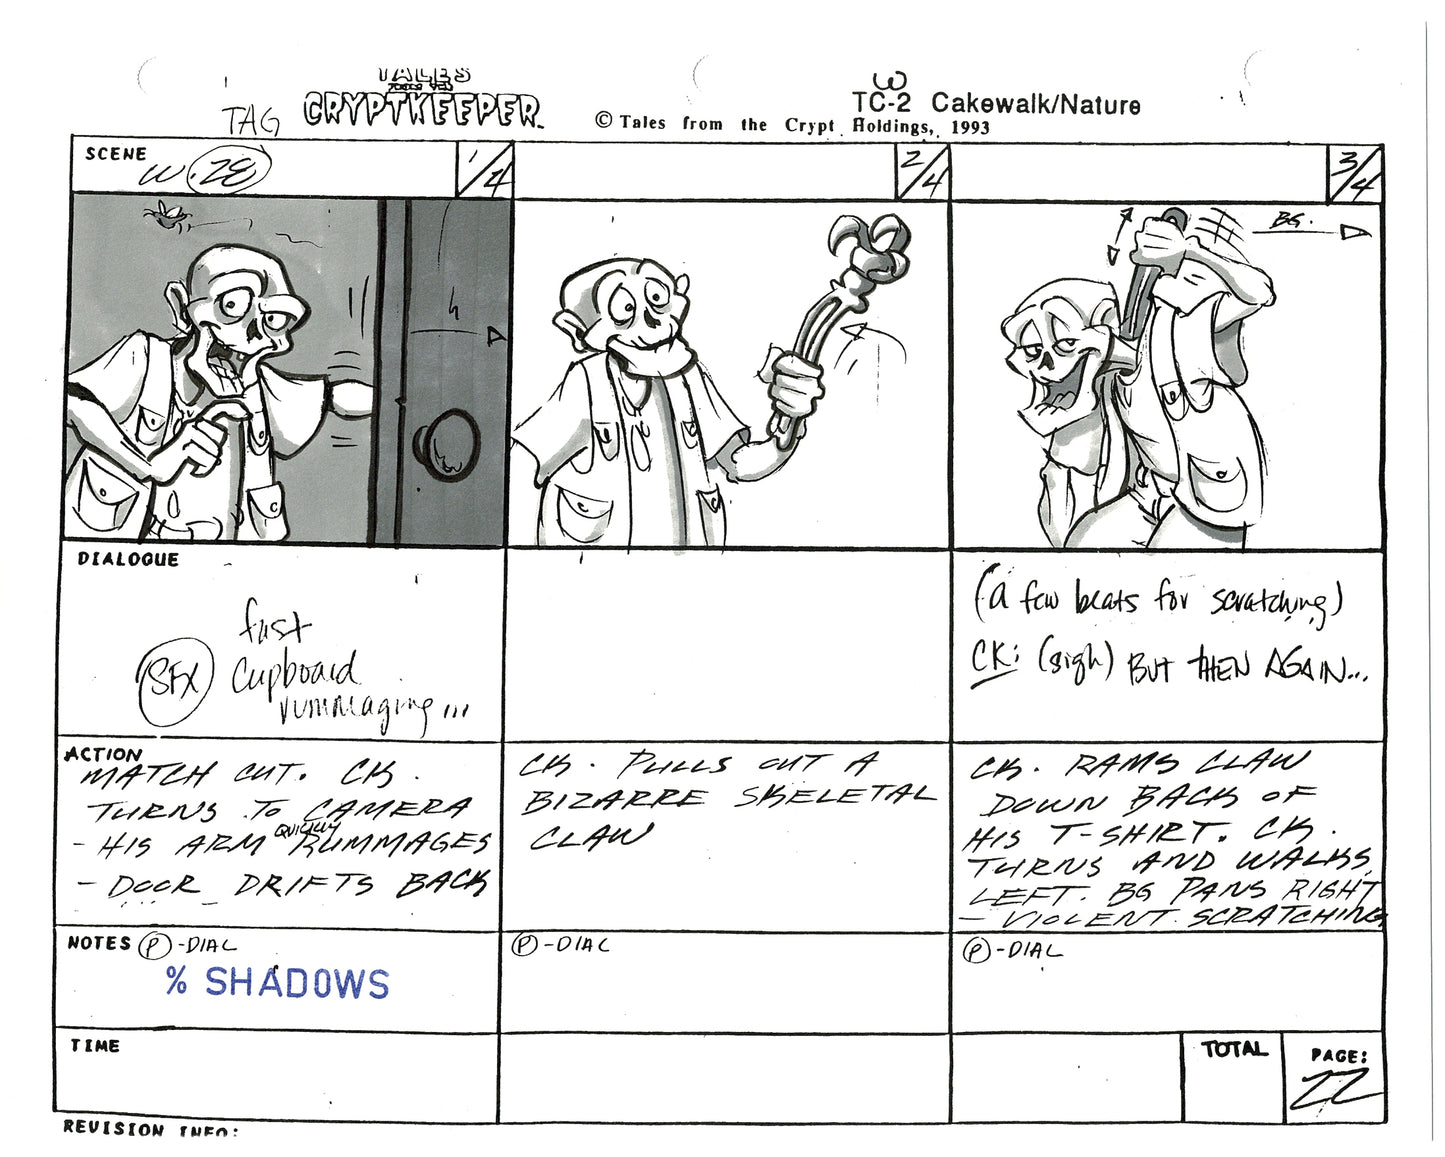 TALES
FROM THE
CRYPTKEEPER
TAG
W
TC-2 Cakewalk/Nature
© Tales from the Crypt Holdings, 1993
SCENE
W 28
1/4
2/4
3/4
BG.
DIALOGUE
SFX
fast
Cupboard
rummaging...
(a few beats for scratching)
CK: (sigh) BUT THEN AGAIN...
ACTION
MATCH CUT. CK.
TURNS TO CAMERA
- HIS ARM QUICKLY RUMMAGES
- DOOR DRIFTS BACK
CK. PULLS OUT A
BIZARRE SKELETAL
CLAW
CK. RAMS CLAW
DOWN BACK OF
HIS T-SHIRT. CK.
TURNS AND WALKS
LEFT. BG PANS RIGHT
- VIOLENT SCRATCHING
NOTES P -DIAL
% SHADOWS
P -DIAL
P -DIAL
TIME
TOTAL
PAGE:
22
REVISION INFO: